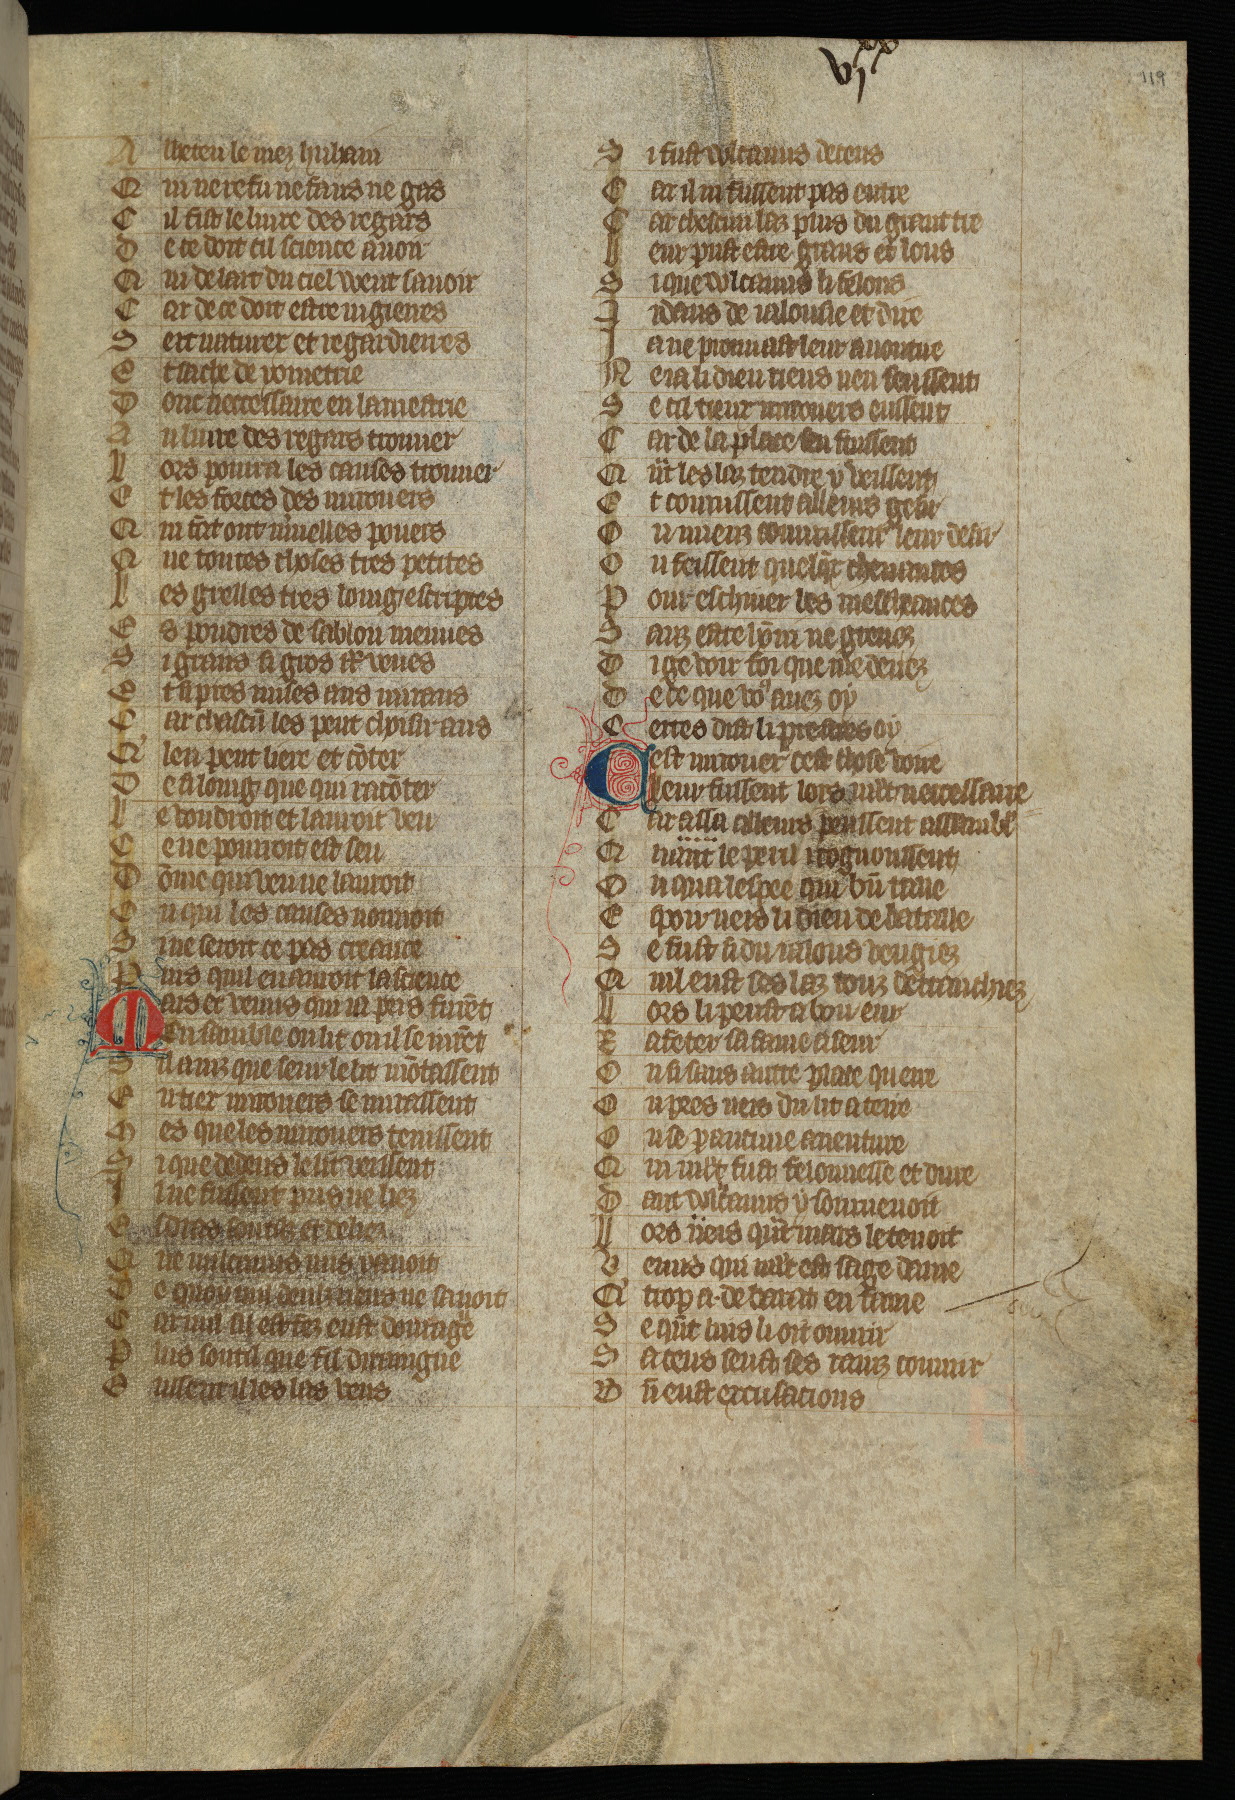 vi xx
119
A lheten le niez huhain
Q ui ne refu ne faus ne gas
C il fist le liure des regars
D e ce doit cil science auoir
Q ui de lart du ciel veut sauoir
C ar de ce doit estre ingieres
S ert naturex et regardieres
E t sache de yometrie
D ont neccessaire en la mestrie
A u liure des regars trouuer
L ors pourra les causes trouuer
E t les forces des mirouers
Q ui tāt ont m̄uelles pouers
Q ue toutes choses tres petites
L es grelles tres loing escriptes
E s poudres de sablon menues
S i grans si gros st̄ veues
E t si pres mises aus mirans
C ar chascū les peut choisir ans
Q' len peut liere et cōter
D e si loing que qui racōter
L e voudroit et lauroit veu
C e ne pourroit est seu
D ōme qui veu ne lauroit
O u qui les causes nonnoit
S i ne seroit ce pas creance
P uis quil en auroit la science
M ars et venus qui ia pris furēt
En samble ou lit ou il se iurēt
S il ainz que seur le lit mōtassent
E n tiex mirouers se mirassent
M es que les mirouers tenissent
S i que dedens le lit veissent
J a ne fussent pris ne liez
E s las soutis et deliez
Q ue vulcanus mis y auoit
D e quoy nul deulz riens ne sauoit
C ar nul sil est fez eust dourage
P lus soutil que fil diraingne
E ussent il les las veus
S i fust vulcanus deceus
C ar il ni fussent pas entre
C ar chescun laz plus du grant tre
L eur pust estre grans et lons
S i que vulcanus li felons
A rdans de ialousie et dire
J a ne prouuast leur auoutire
N e ia li dieu riens nen seussent
S e cil tieux mirouers eussent
C ar de la place sen fouissent
Q n̄t les laz tendre y veissent
E t courussent ailleurs gesir
O u mieux couurissent leur desir
O u feissent quelq̄ cheuances
P our eschiuer les mescheances
S anz estre hōni ne greuez
D i ge voir foi que me deuez
D e ce que vo' auez oy
C ertes dist li prestres oy
C est mirouer cest chose voire
leur fussent lors m̄lt neccessaire
C ar assa ailleurs peussent assambl'
Q n̄t le peril icognoussent
O u qua lespee qui bn̄ taille
E spoir uers li dieu de bataille
S e fust si du ialous vengiez
Q uil eust ses laz touz detranchiez
L ors li peust a bon eur
R afeter sa fame aseur
O u li sans autre place querre
O u pres uers du lit a terre
O u se p aucune auenture
Q ui m̄lt fust felonnesse et dure
D ant vulcanus y souruenoit
L ors nēis qn̄t mars le tenoit
V enus qui m̄lt est sage dame
Q' trop a de barat en fame
S e qn̄t luis li oit ouurir
S a tens seust ses rainz couurir
B n̄ eust excusations